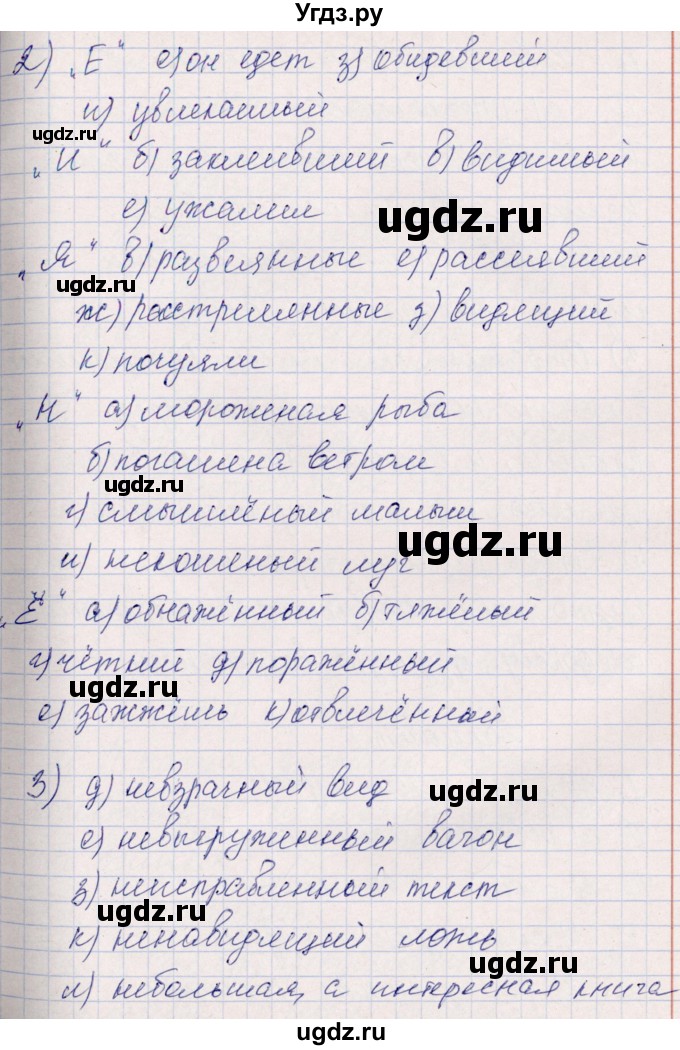 Угдз.ру
2) „Е“ е) он едет з) обидевший
и) увлекаемый
ugdz.ru
„И“ б) заклеивший в) видимый
е) ужалим
ugdz.ru
„Я“ в) развеянные е) рассеявший
ugdz.ru
ж) расстрелянные з) видящий
к) почуяли
„Н“ а) мороженая рыба
б) погашена ветром
ugdz.ru
г) смышлёный малыш
ugdz.ru
и) некошеный луг
„Ё“ а) обнажённый б) тяжёлый
г) чёткий д) поражённый
ugdz.ru
е) зажжёшь к) отвлечённый
3) д) невзрачный вид
ugdz.ru
е) невыгруженный вагон
з) неисправленный текст
ugdz.ru
к) ненавидящий ложь
ugdz.ru
л) небольшая, а интересная книга
ugdz.ru